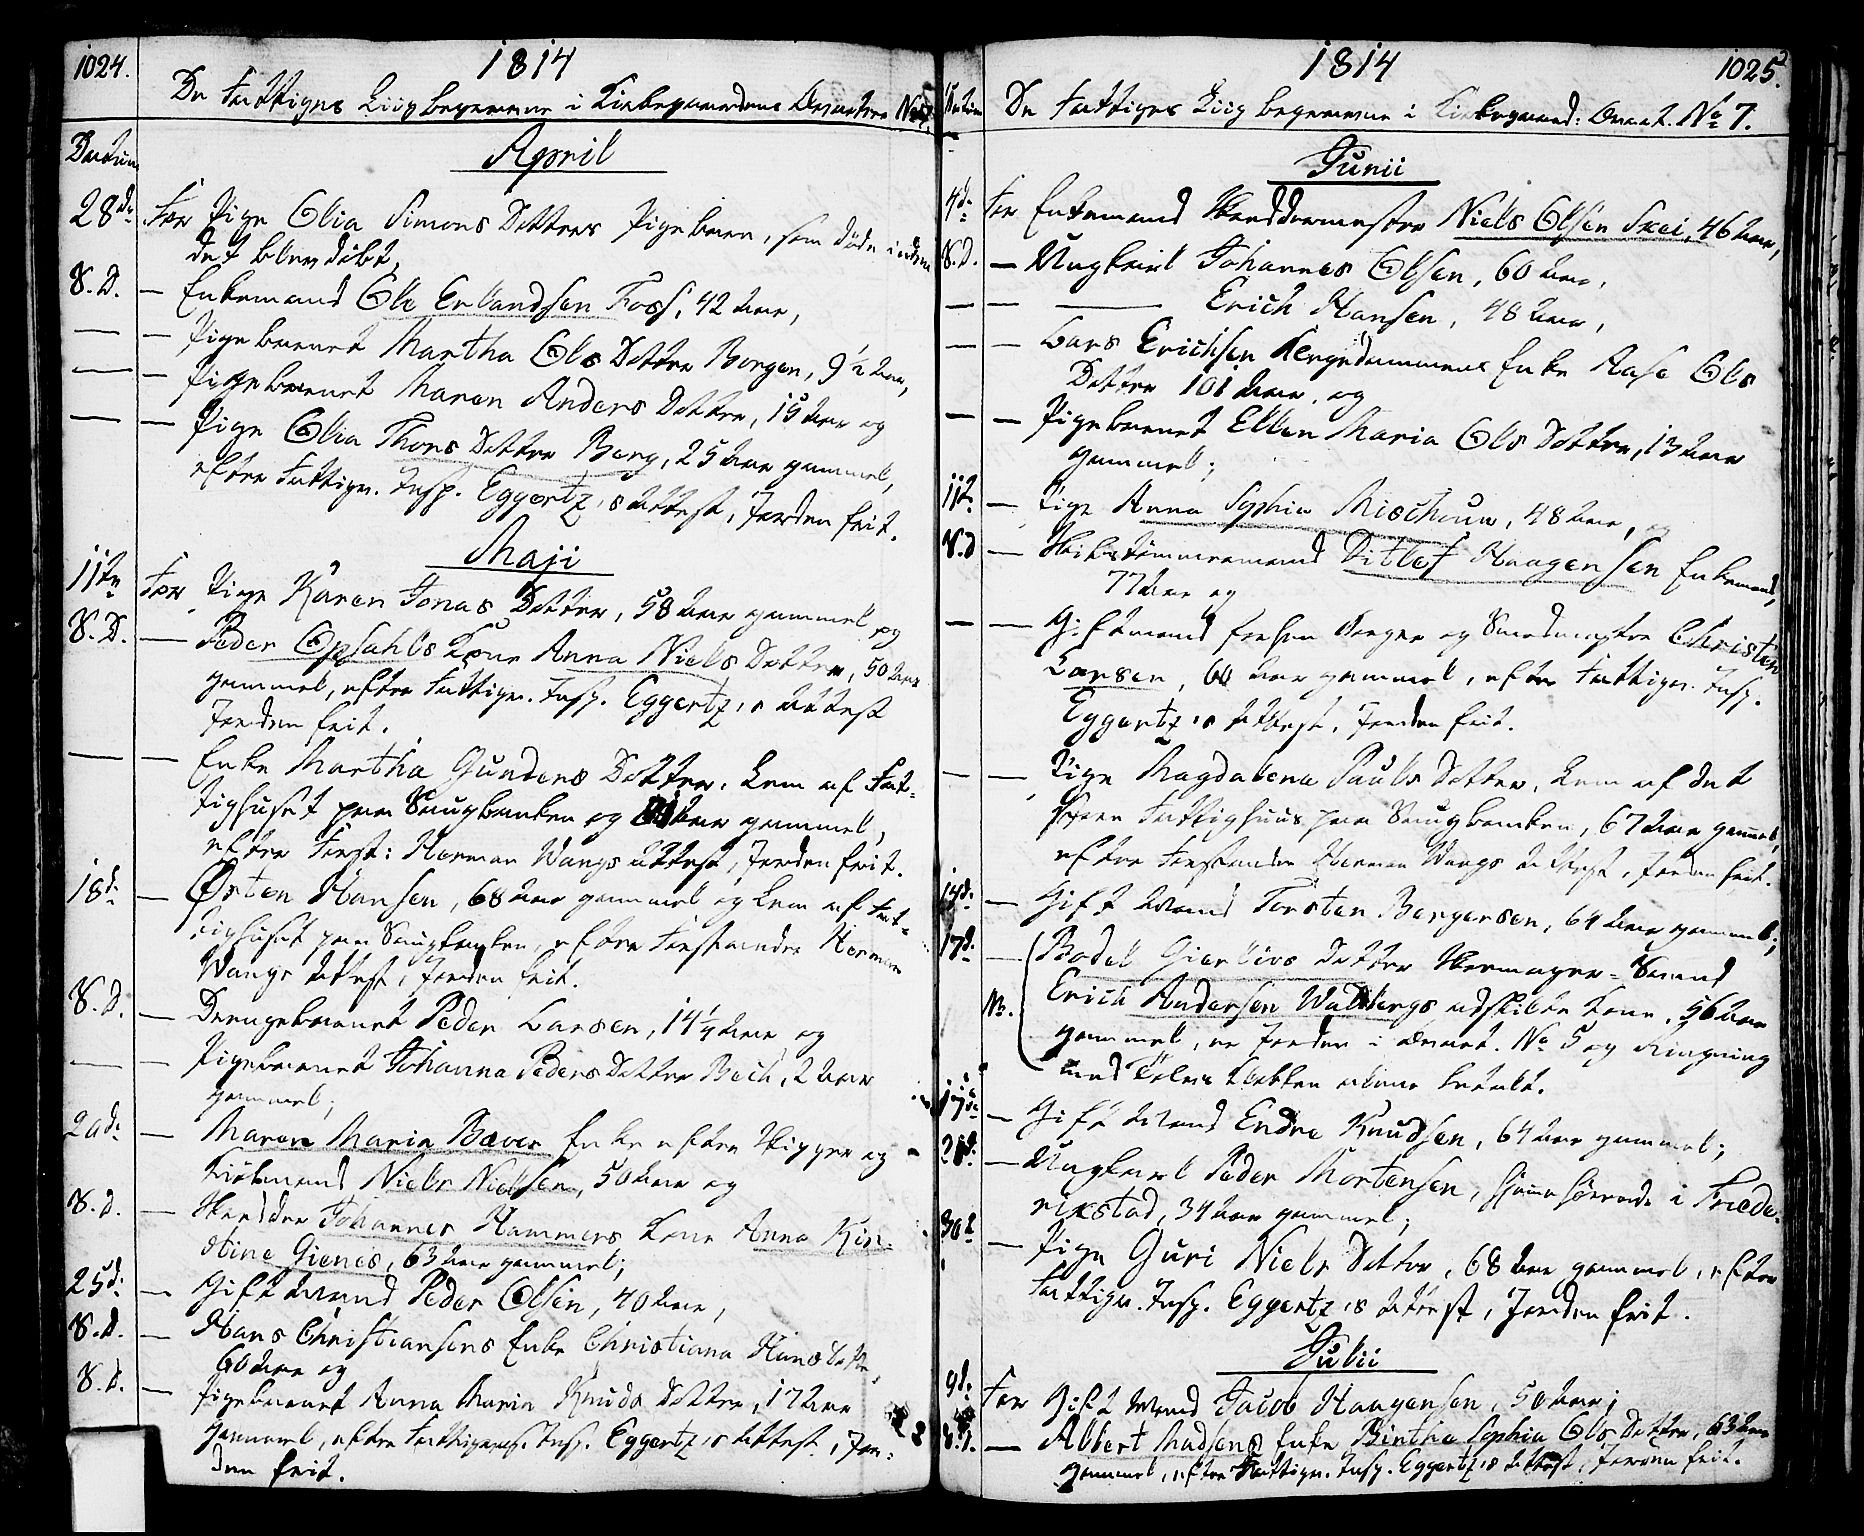 1024.
1814
De Fattiges Liig begravne i Kirkegaardens Qvarteer No 7.
Datum
April
28de For Pige Olia Simons Datters Pigebarn, som døde inden
det blev døbt,
S. D. — Enkemand Ole Erlandsen Foss, 42 Aar,
— — Pigebarnet Martha Ols Datter Borgen, 9½ Aar,
— — Pigebarnet Maren Anders Datter, 15 Aar og
— — Pige Olia Thors Datter Berg, 25 Aar gammel,
efter Fattigv. Insp. Eggertz's Attest, Jorden frit.
Maji
11te For Pige Karen Jonas Datter, 58 Aar gammel og
S. D. — Peder Opsahls Kone Anna Niels Datter, 50 Aar
gammel, efter Fattigv. Insp. Eggertz's Attest
Jorden frit.
— — Enke Martha Gunders Datter, Lem af Fat-
tighuset paa Saugbanken og Aar gammel,
efter Forst: Herman Wangs Attest, Jorden frit.
18d: — Østen Hansen, 68 Aar gammel og Lem af Fat-
tighuset paa Saugbanken, efter Forstander Herman
Wangs Attest, Jorden frit.
S. D. — Drengebarnet Peder Larsen, 14¼ Aar og
— — Pigebarnet Johanna Peders Datter Bech, 2 Aar
gammel;
20d: — Maren Maria Bæver Enke efter Skipper og
Kiøbmand Niels Nielsen, 50 Aar og
S. D. — Skrædder Johannes Hammers Kone Anna Kir-
stine Gienes, 63 Aar gammel;
25d: — Gift Mand Peder Olsen, 40 Aar,
S. D. — Hans Christiansens Enke Christiana Hans Datter,
60 Aar og
S. D. — Pigebarnet Anna Maria Knuds Datter, 17 Aar
gammel, efter Fattigvæs. Insp. Eggertz's Attest, Jor-
den frit.
1814
1025.
Datum
De Fattiges Liig begravne i Kirkegaard: Qvart. No 7.
Junii
4de For Enkemand Skræddermester Niels Olsen Svei, 46 Aar,
S. D. — Ungkarl Johannes Olsen, 60 Aar,
— — — Erich Hansen, 48 Aar,
— — Lars Erichsen Enke Aase Ols
Datter 101 Aar, og
— — Pigebarnet Ellen Maria Ols Datter, 13 Aar
gammel;
11te — Pige Anna Sophia Mischoun, 48 Aar, og
S. D — Skibstømmermand Ditlef Haagensen Enkemand,
77 Aar og
— — Gift Mand forhen Borger og Smedmester Christen
Larsen, 60 Aar gammel, efter Fattigv. Insp.
Eggertz's Attest, Jorden frit.
— — Pige Magdalena Pauls Datter, Lem af det
Fattighuus paa Saugbanken, 67 Aar gammel,
efter Forstander Herman Wangs Attest, Jorden frit.
— Gift Mand Torsten Bergersen, 64 Aar gammel;
17d. — Bodel Gierlivs Datter Skomager-Svend
Nb. Erich Andersen Waldbergs adskilte Kone, 56 Aar
gammel, er Jorden i Qvart. No 5 og Ringning
med Klokken betalt.
17de — Gift Mand Endre Knudsen, 64 Aar gammel;
— Ungkarl Peder Mortensen, hiemhørende i Frede-
rikstad, 34 Aar gammel;
30d — Pige Guri Niels Datter, 68 Aar gammel, efter
Fattigv. Insp. Eggertz's Attest, Jorden frit.
Julii
9d: For Gift Mand Jacob Haagensen, 50 Aar;
S. D. — Albert Madsens Enke Birthe Sophia Ols Datter, 63 Aar
gammel, efter Fattigv. Insp. Eggertz's Attest, Jorden frit.